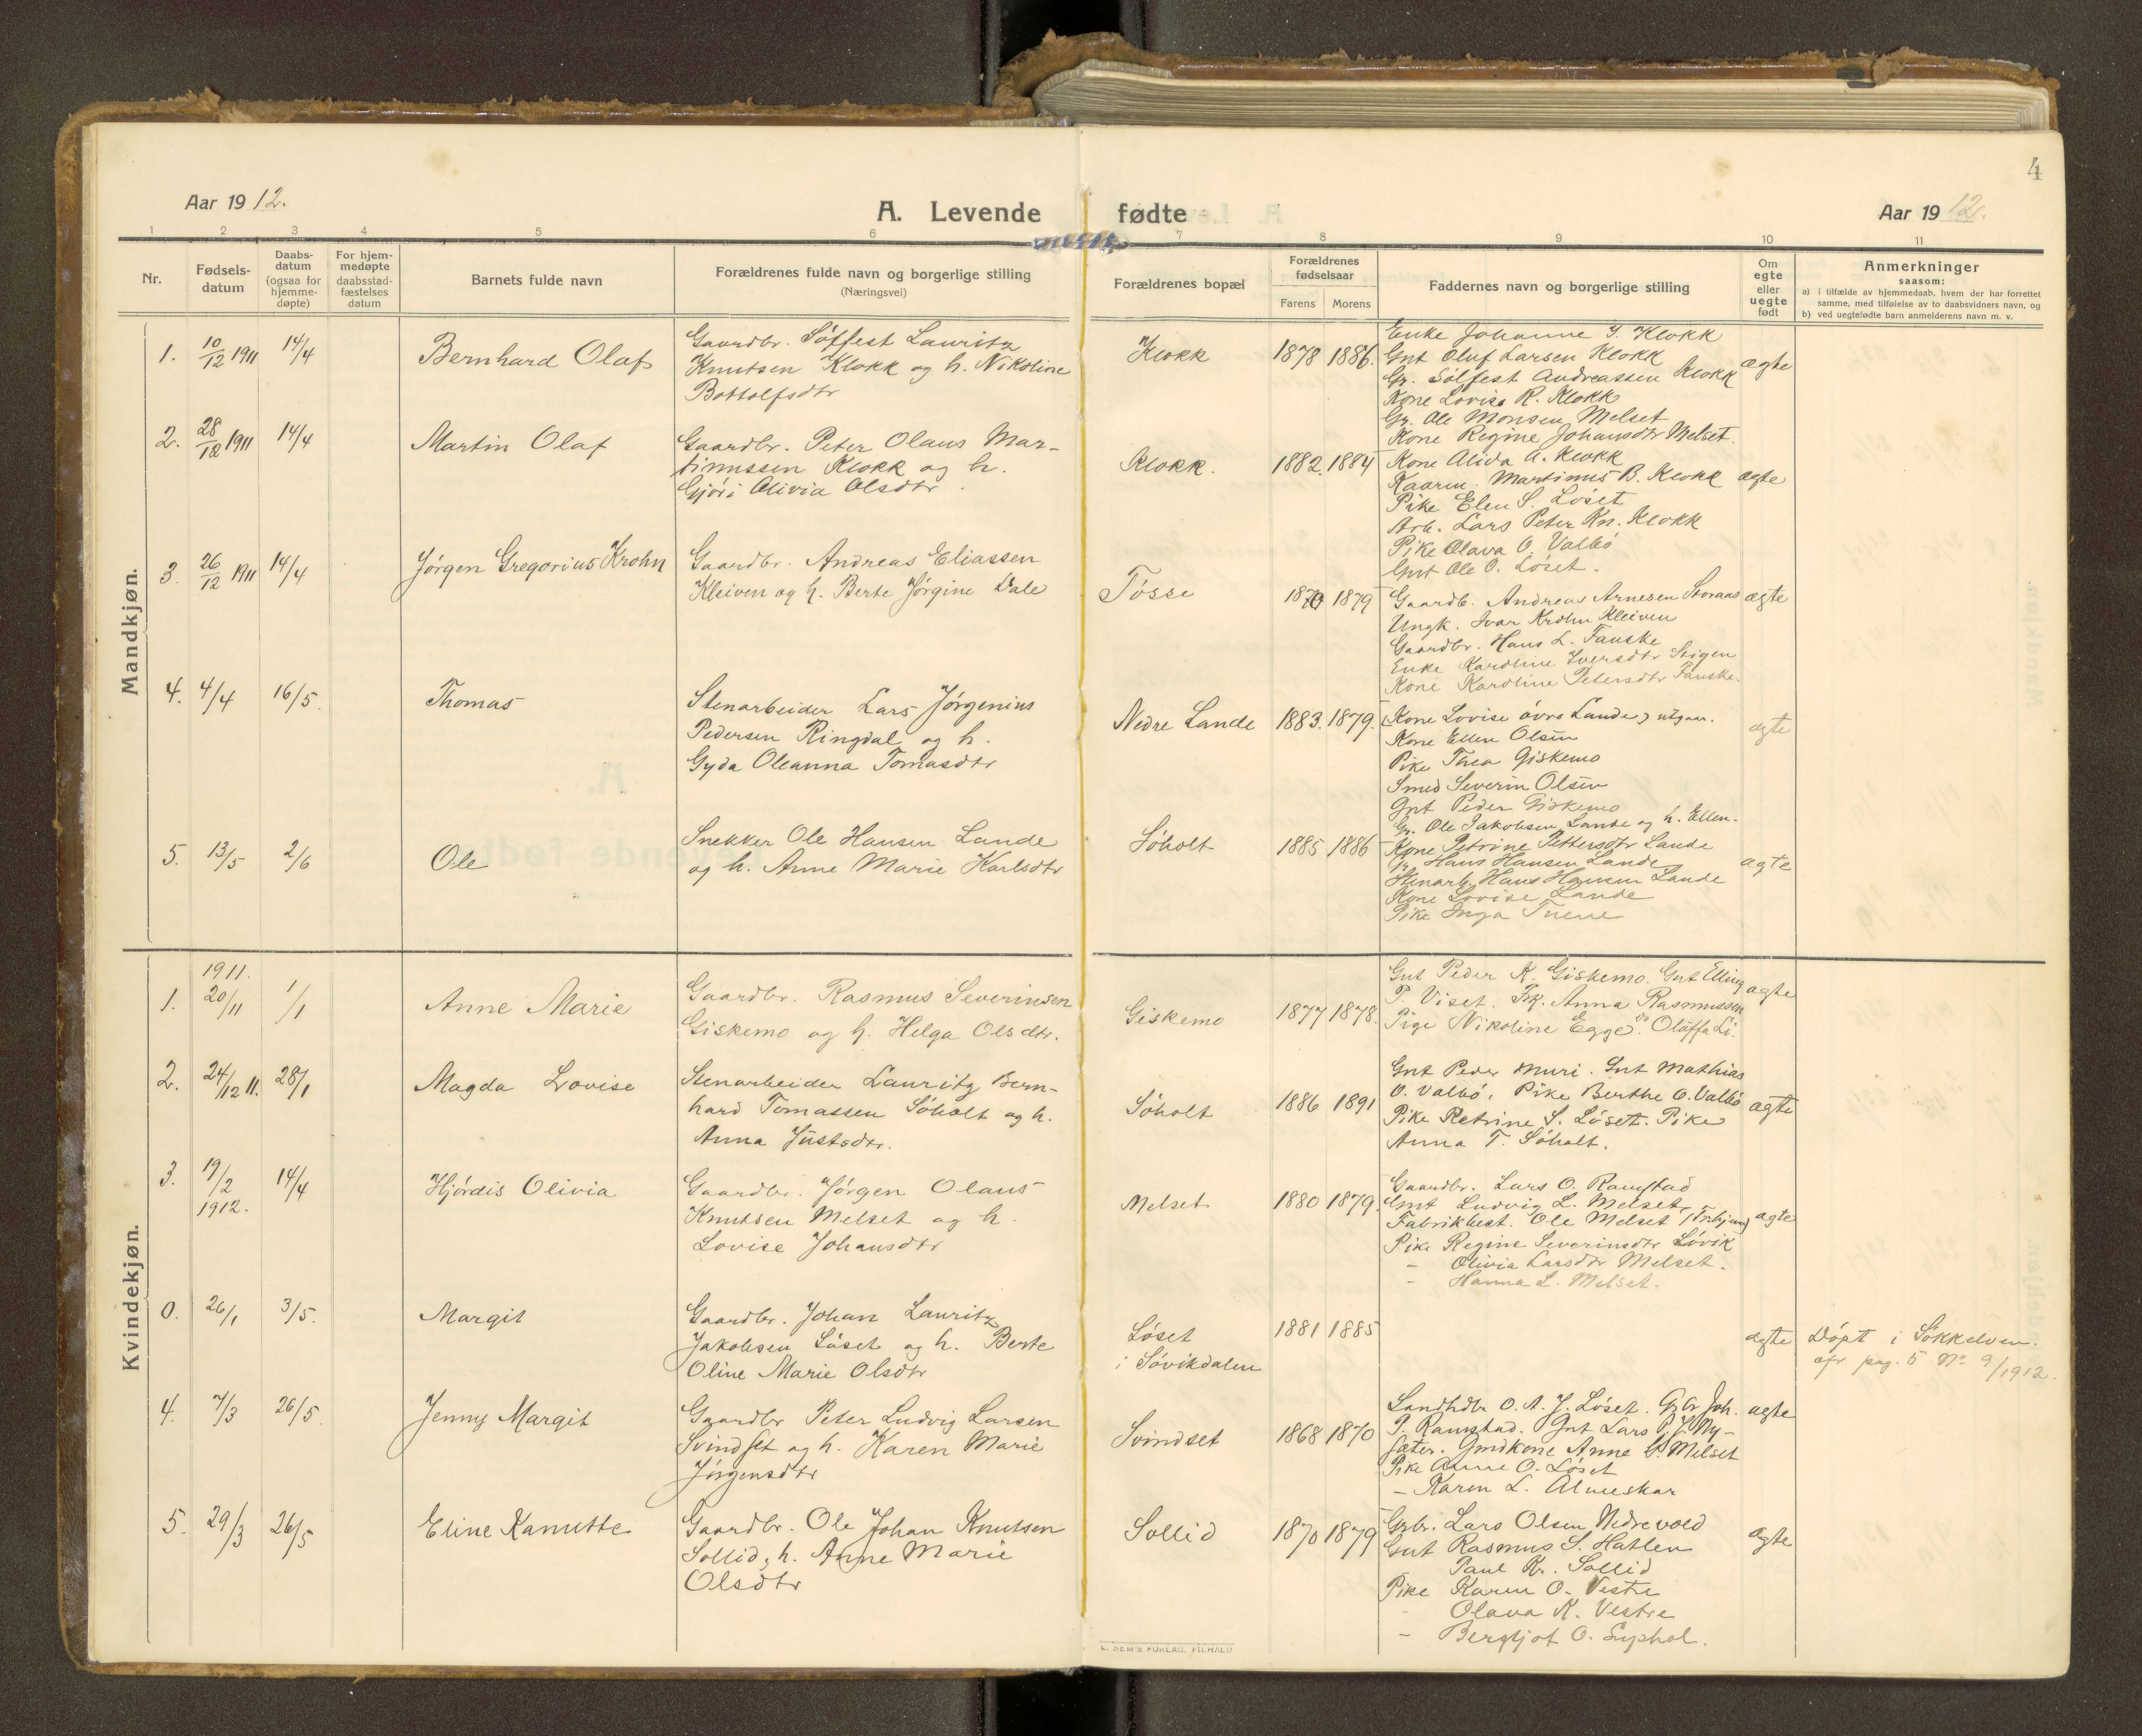 4
Aar 1912.
A. Levende fødte
Aar 1912.
1 2 3 4 5 6 7 8 9 10 11
Nr.
Fødsels-
datum
Daabs-
datum
(ogsaa for
hjemme-
døpte)
For hjem-
medøpte
daabsstad-
fæstelses
datum
Barnets fulde navn
Forældrenes fulde navn og borgerlige stilling
(Næringsvei)
Forældrenes bopæl
Forældrenes
fødselsaar
Farens Morens
Faddernes navn og borgerlige stilling
Om
egte
eller
uegte
født
Anmerkninger
saasom:
a) i tilfælde av hjemmedaab, hvem der har forrettet
samme, med tilføielse av to daabsvidners navn, og
b) ved uegtefødte barn anmelderens navn m. v.
Mandkjøn.
1. 10/12 1911 14/4 Bernhard Olaf
Gaardbr. Søffest Lauritz
Knutsen Klokk og h. Nikoline
Bottolfsdtr
Klokk 1878 1886.
Enke Johanne S. Klokk
Gut Oluf Larsen Klokk
Gr. Sølfest Andreassen Klokk
Kone Lovise R. Klokk
Gr. Ole Monsen Melset
Kone Regine Johansdtr Melset.
ægte
2. 28/12 1911 14/4 Martin Olaf
Gaardbr. Peter Olaus Mar-
tinussen Klokk og h.
Gjøri Olivia Olsdtr.
Klokk. 1882. 1884
Kone Alida A. Klokk
Kaarm. Martinus B. Klokk
Pike Elen S. Løset
Arb. Lars Peter Kn. Klokk
Pike Olava O. Valbø
Gut Ole O. Løset.
ægte
3. 26/12 1911 14/4 Jørgen Gregorius Krohn
Gaardbr. Andreas Eliassen
Kleiven og h. Berte Jørgine Dale
Tøsse 1870 1879
Gaardb. Andreas Arnesen Storaas
Ungk. Ivar Krohn Kleiven
Gaardbr. Hans L. Fauske
Enke Karoline Iversdtr Stigen
Kone Karoline Petersdtr Fauske.
ægte
4. 4/4 16/5. Thomas
Stenarbeider Lars Jørgenius
Pedersen Ringdal og h.
Gyda Oleanna Tomasdtr
Nedre Lande 1883. 1879.
(Kone Lovise øvre Lande) utgaar.
Kone Ellen Olsen
Pike Thea Giskemo
Smed Severin Olsen
Gut Peder Giskemo
Gr. Ole Jakobsen Lande og h. Ellen.
ægte
5. 13/5 2/6 Ole
Snekker Ole Hansen Lande
og h. Anne Marie Karlsdtr
Søholt 1885 1886
Kone Petrine Pettersdtr Lande
Gr. Hans Hansen Lande
Stenarb. Hans Hansen Lande
Kone Lovise Lande
Pike Inga Tuene
ægte
Kvindekjøn.
1. 1911. 20/11 1/1 Anne Marie
Gaardbr. Rasmus Severinsen
Giskemo og h. Helga Olsdtr.
Giskemo 1877 1878.
Gut Peder K. Giskemo. Gut Elling
P. Viset. Frk. Anna Rasmussen
Pige Nikoline Egge. Do Oloffa Li.
ægte
2. 24/12 11. 28/1 Magda Lovise
Stenarbeider Lauritz Bern-
hard Tomassen Søholt og h.
Anna Justsdtr.
Søholt 1886 1891
Gut Peder Muri. Gut Mathias
O. Valbø, Pike Berthe O. Valbø
Pike Petrine S. Løset. Pike
Anna T. Søholt.
ægte
3. 19/2 1912. 14/4 Hjørdis Olivia
Gaardbr. Jørgen Olaus
Knutsen Melset og h.
Lovise Johansdtr
Melset 1880 1879.
Gaardbr. Lars O. Ramstad
Gut Ludvig L. Melset
Fabrikbest. Ole Melset
Pike Regine Severinsdtr Løvik
- Olivia Larsdtr Melset.
- Hanna L. Melset.
ægte
0. 26/1 3/5. Margit
Gaardbr. Johan Lauritz
Jakobsen Løset og h. Berte
Oline Marie Olsdtr
Løset
i Søvikdalen
1881 1885
ægte
Døpt i Søkkelven.
cfr pag. 5 No 9/1912.
4. 7/3 26/5. Jenny Margit
Gaardbr Peter Ludvig Larsen
Svindset og h. Karen Marie
Jørgensdtr
Svindset 1868 1870
Landhdl. O. A. J. Løset. Gbr Joh.
P. Ramstad. Gut Lars P. J. Ny-
sæter. Gmdkone Anne S. Melset
Pike Anne O. Løset
- Karen L. Almeskar
ægte
5. 29/3 26/5 Eline Kanutte
Gaardbr. Ole Johan Knutsen
Sollid, h. Anne Marie
Olsdtr
Sollid 1870 1879
Grbr. Lars Olsen Nedrevold
Gut Rasmus S. Hatlen
Paul Kr. Sollid
Pike Karen O. Vestre
- Olava K. Vestre
- Bergljot O. Syphol.
ægte
E. SEM'S FORLAG, FR.HALD